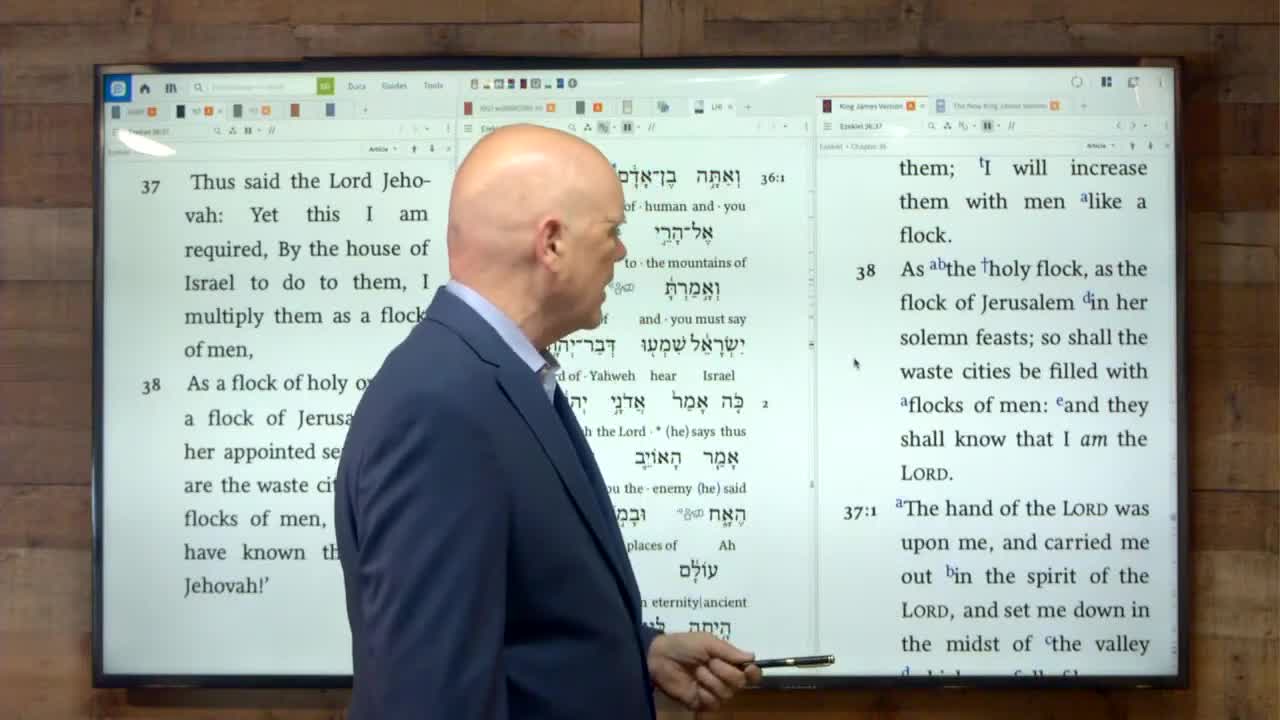 Guides Tools
King James Version The New King James Version
LHI
Ezekiel 36:37
Ezekiel 36:37
Article
Ezekiel • Chapter 36 Article
37 Thus said the Lord Jeho-
vah: Yet this I am
required, By the house of
Israel to do to them, I
multiply them as a flock
of men,
38 As a flock of holy
a flock of
her appointed
are the waste
flocks of men,
have known
Jehovah!'
וְאַתָּ֣ה בֶן־אָדָ֔ם 36:1
of · human and · you
אֶל־הָרֵ֣י
to · the mountains of
וְאָ֣מַרְתָּ֔
and · you must say
יִשְׂרָאֵ֔ל שִׁמְע֖וּ
of · Yahweh hear Israel
כֹּ֤ה אָמַר֙ אֲדֹנָ֣י 2
the Lord · * (he) says thus
אָמַ֧ר הָאוֹיֵ֛ב
the · enemy (he) said
הֶאָ֑ח
places of Ah
עוֹלָ֔ם
eternity|ancient
הָ֥יְתָה
them; tI will increase
them with men alike a
flock.
38 As abthe †holy flock, as the
flock of Jerusalem din her
solemn feasts; so shall the
waste cities be filled with
aflocks of men: eand they
shall know that I am the
LORD.
37:1 aThe hand of the LORD was
upon me, and carried me
out bin the spirit of the
LORD, and set me down in
the midst of cthe valley